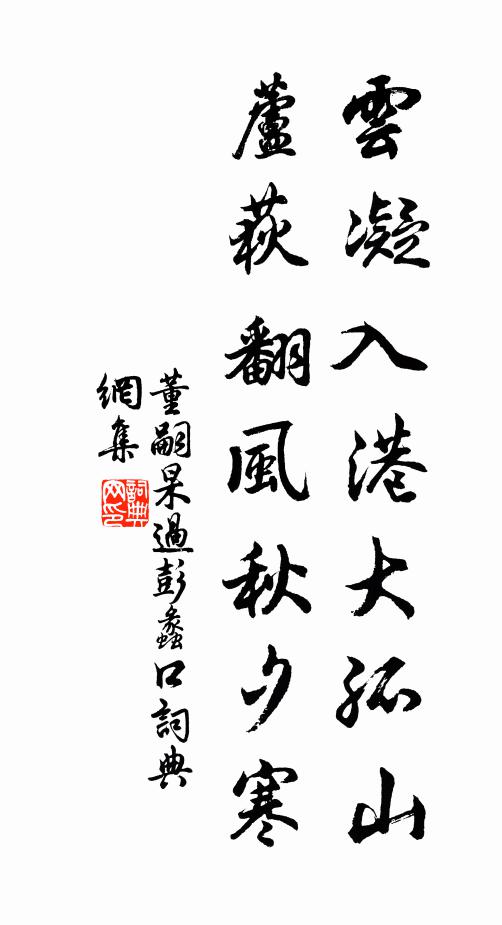 雲凝入港大孤山
蘆荻翻風秋夕寒
董嗣杲過彭蠡口詞典
網集
詞典
网印